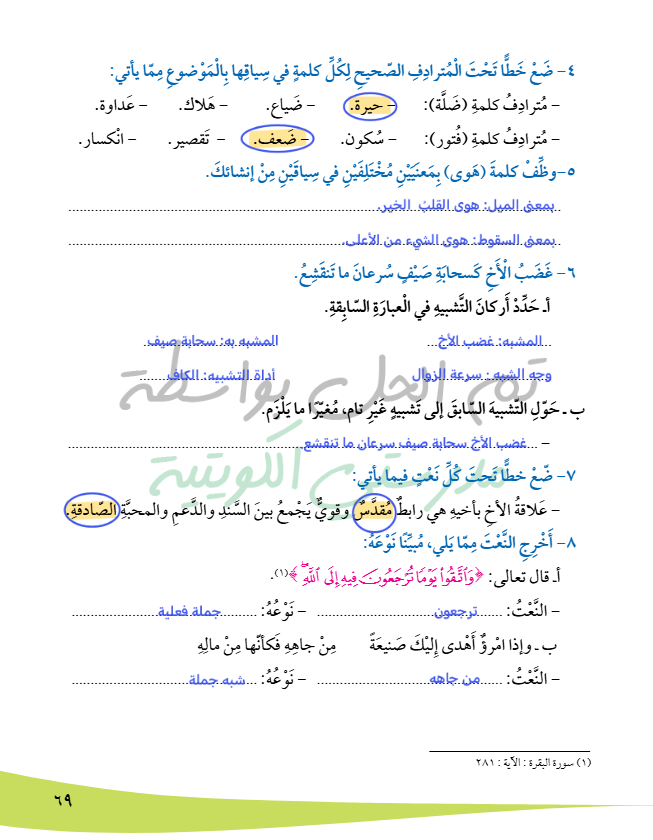 ٤ - ضَعْ خَطًّا تَحْتَ الْمُترادِفِ الصّحيحِ لِكُلِّ كلمةٍ في سِياقِها بِالْمَوْضوعِ مِمّا يأتي:
– مُترادِفُ كلمةِ (ضَلَّة): – حيرة. – ضَياع. – هَلاك. – عَداوة.
– مُترادِفُ كلمةِ (فُتور): – سُكون. – ضَعف. – تَقصير. – انْكسار.
٥ -وظِّفْ كلمةَ (هَوى) بِمَعنَيَيْنِ مُخْتَلِفَيْنِ في سياقَيْنِ مِنْ إنشائكَ.
بمعنى الميل: هوى القلبَ الخير.
بمعنى السقوط: هوى الشيء من الأعلى.
٦ - غَضَبُ الْأَخِ كَسحابَةِ صَيْفٍ سُرعانَ ما تَنقَشِعُ.
أ- حَدِّدْ أركانَ التَّشبيهِ في الْعبارَةِ السّابِقةِ.
المشبه: غضب الأخ المشبه به: سحابة صيف
وجه الشبه : سرعة الزوال أداة التشبيه: الكاف
تم الحل بواسطة
ب - حَوِّلِ التّشبيهَ السّابقَ إلى تَشبيهٍ غَيْرِ تام، مُغيّرًا ما يَلْزَم.
– غضب الأخ سحابة صيف سرعان ما تنقشع
مدرستي الكويتية
٧ - ضّعْ خطًّا تَحتَ كُلِّ نَعْتٍ فيما يأتي:
– عَلاقةُ الأخِ بأخيهِ هي رابطٌ مُقدَّسٌ وقويٌّ يَجْمعُ بينَ السَّندِ والدَّعمِ والمحبّةِ الصّادقةِ.
٨ - أَخْرِجِ النَّعْتَ مِمّا يَلي، مُبيِّنًا نَوْعَهُ:
أ- قال تعالى: ﴿وَٱتَّقُوا۟ يَوْمًا تُرْجَعُونَ فِيهِ إِلَى ٱللَّهِ ۖ﴾(١).
– النَّعْتُ: ترجعون – نَوْعُهُ: جملة فعلية
ب - وإذا امْرؤٌ أَهْدى إِلَيْكَ صَنيعَةً مِنْ جاهِهِ فَكأنّها مِنْ مالِهِ
– النَّعْتُ: من جاهه – نَوْعُهُ: شبه جملة
(١) سورة البقرة : الآية : ٢٨١
٦٩